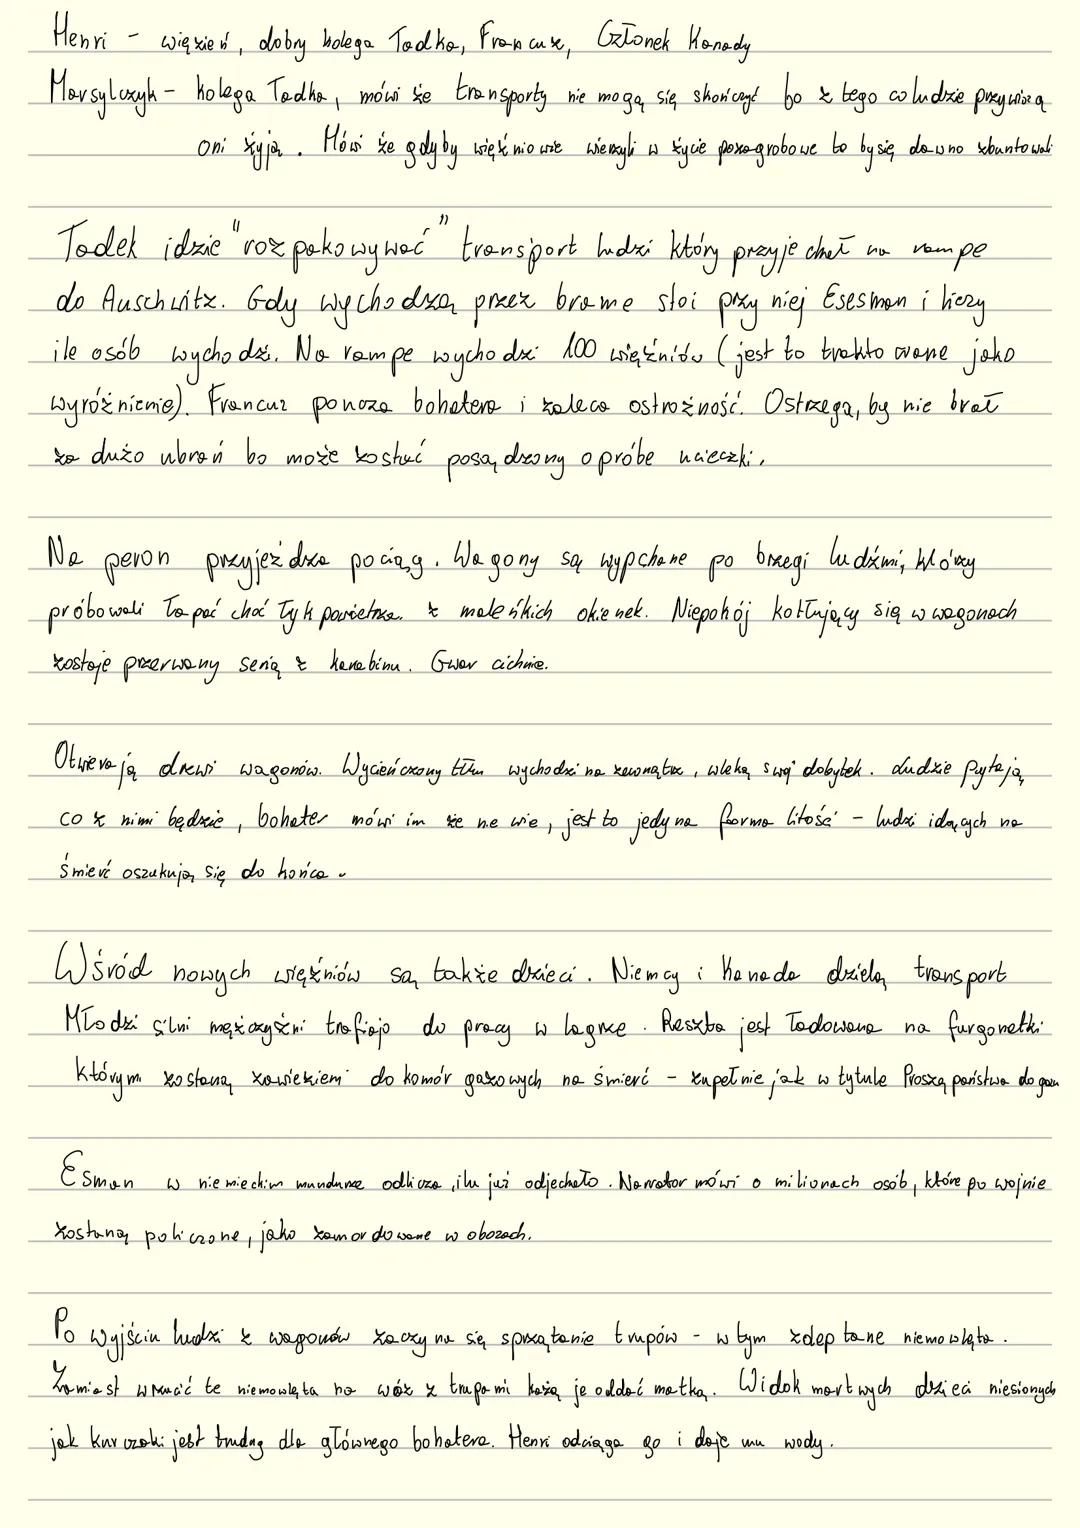 Henri - więzień, dobry kolega Tadka, Francuz, Członek Kanady
Marsylczyk - kolega Tadka, mówi że transporty nie mogą się skończyć bo z tego co ludzie przywiozą
oni żyją. Mówi że gdyby więźniowie wierzyli w życie pozagrobowe to by się dawno zbuntowali
Tadek idzie "rozpakowywać" transport ludzi który przyjechał na rampe
do Auschwitz. Gdy wychodzą przez brame stoi przy niej Esesman i liczy
ile osób wychodzi. Na rampe wychodzi 100 więźniów (jest to traktowane jako
wyróżnienie). Francuz pogania bohatera i zaleca ostrożność. Ostrzega, by nie brał
za dużo ubrań bo może zostać posądzony o próbe ucieczki.
Na peron przyjeżdża pociąg. Wagony są wypchane po brzegi ludźmi, którzy
próbowali łapać choć łyk powietrza z maleńkich okienek. Niepokój kotłujący się w wagonach
zostaje przerwany serią z karabinu. Gwar cichnie.
Otwierają drzwi wagonów. Wycieńczony tłum wychodzi na zewnątrz, wleką swój dobytek. Ludzie pytają
co z nimi będzie, bohater mówi im że nie wie, jest to jedyna forma litość - ludzi idących na
śmierć oszukują się do końca.
Wśród nowych więźniów są także dzieci. Niemcy i Kanada dzielą transport
Młodzi silni mężczyźni trafiają do pracy w łagrze. Reszta jest ładowana na furgonetki
którymi zostaną zawiezieni do komór gazowych na śmierć - zupełnie jak w tytule Proszą państwa do gazu
Esman w niemieckim mundurze odlicza, ilu już odjechało. Narrator mówi o milionach osób, które po wojnie
zostaną policzone, jako zamordowane w obozach.
Po wyjściu ludzi z wagonów zaczyna się sprzątanie trupów - w tym zdeptane niemowlęta.
Zamiast wrzucić te niemowlęta na wóz z trupami każą je oddać matką. Widok martwych dzieci niesionych
jak kurczaki jest trudny dla głównego bohatera. Henri odciąga go i daje mu wody.